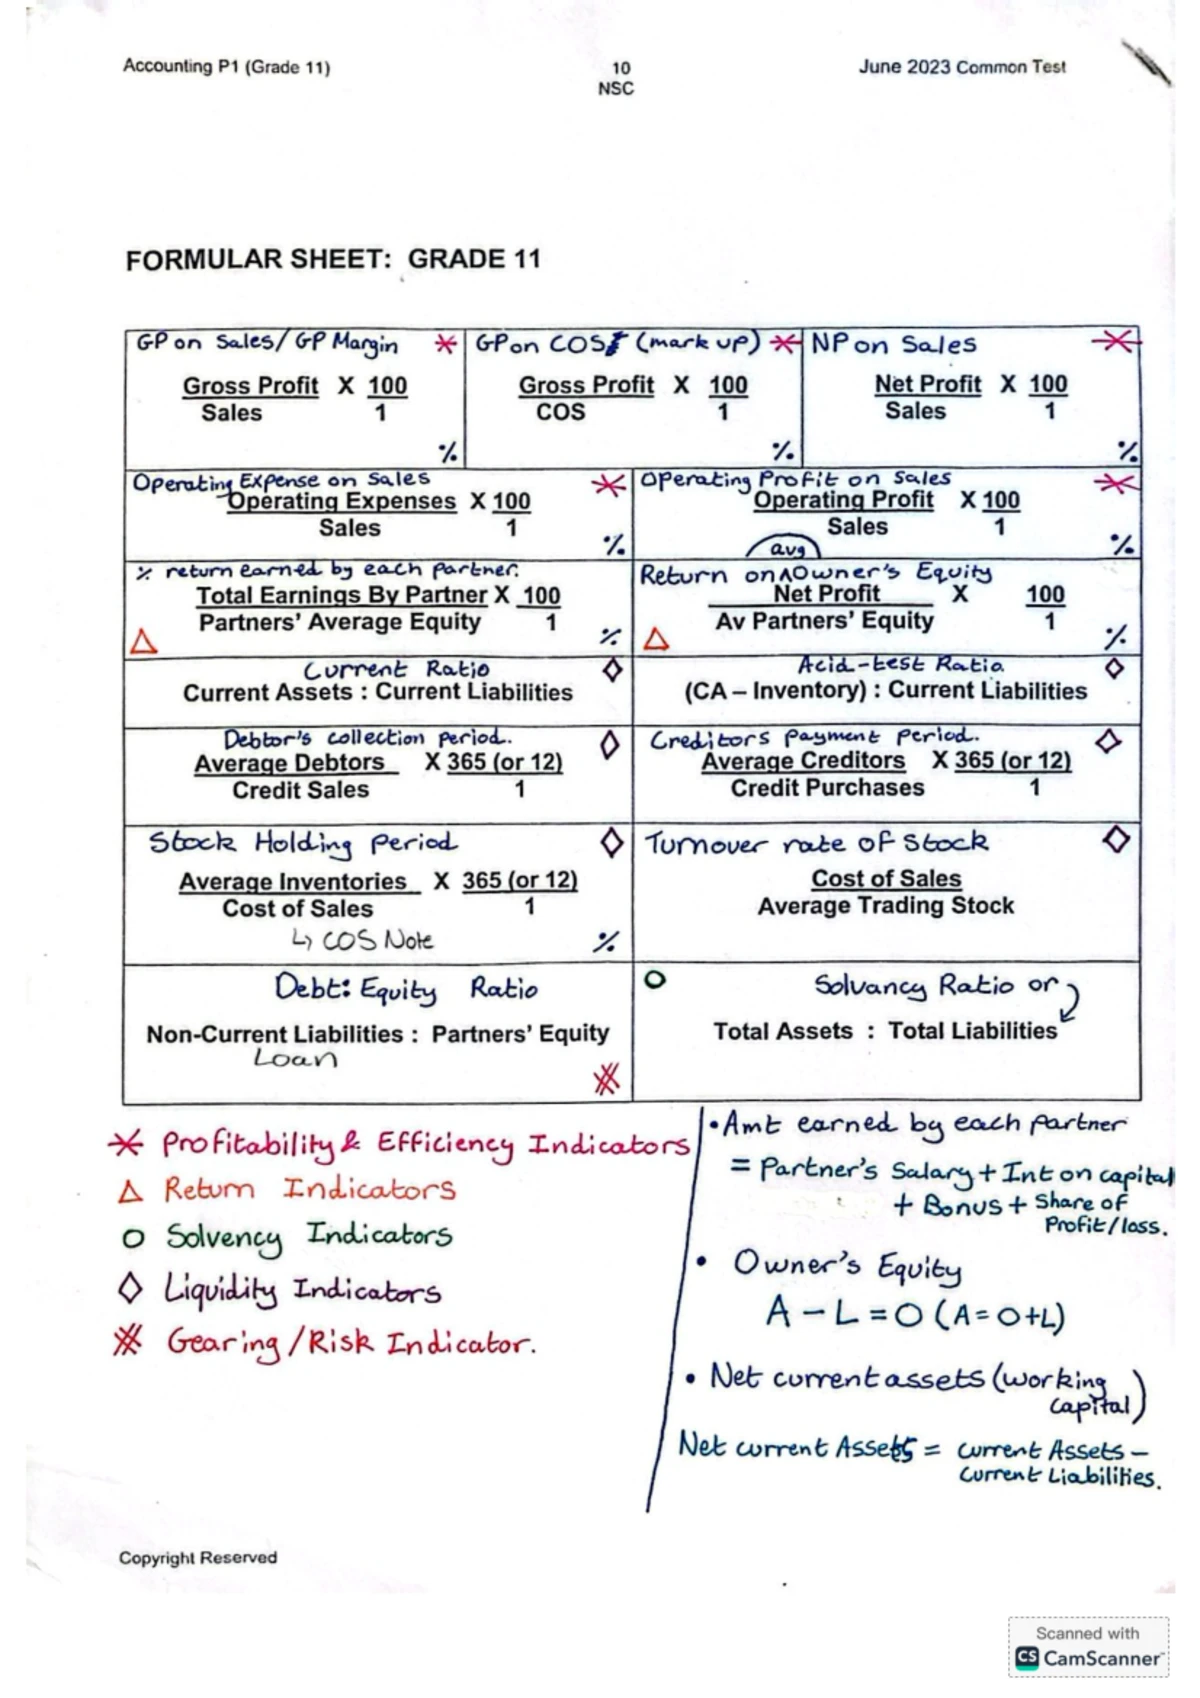 Accounting P1 (Grade 11) 10 June 2023 Common Test
NSC
FORMULAR SHEET: GRADE 11
GP on Sales/ GP Margin
Gross Profit X 100
Sales 1
%
GP on COS (mark up)
Gross Profit X 100
COS 1
%
NP on Sales
Net Profit X 100
Sales 1
%
Operating Expense on Sales
Operating Expenses X 100
Sales 1
%
Operating Profit on Sales
Operating Profit X 100
Sales 1
%
% return earned by each partner.
Total Earnings By Partner X 100
Partners' Average Equity 1
%
avg
Return on ^ Owner's Equity
Net Profit X 100
Av Partners' Equity 1
%
Current Ratio
Current Assets : Current Liabilities
Acid-test Ratio
(CA – Inventory) : Current Liabilities
Debtor's collection period.
Average Debtors X 365 (or 12)
Credit Sales 1
Creditors payment period.
Average Creditors X 365 (or 12)
Credit Purchases 1
Stock Holding Period
Average Inventories X 365 (or 12)
Cost of Sales 1
↳ COS Note
%
Turnover rate of Stock
Cost of Sales
Average Trading Stock
Debt: Equity Ratio
Non-Current Liabilities : Partners' Equity
Loan
Solvancy Ratio or
Total Assets : Total Liabilities
Profitability & Efficiency Indicators
Return Indicators
Solvency Indicators
Liquidity Indicators
Gearing / Risk Indicator.
• Amt earned by each partner
= Partner's Salary + Int on capital
+ Bonus + Share of
Profit/loss.
• Owner's Equity
A – L = O (A = O + L)
• Net current assets (working
capital)
Net current Assets = current Assets –
Current Liabilities.
Copyright Reserved
Scanned with
CS CamScanner